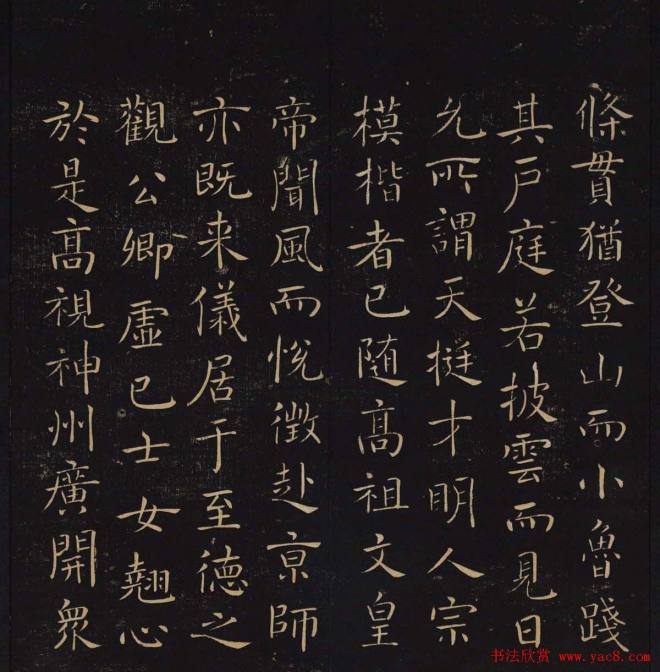 條貫猶登山而小魯踐
其戶庭若披雲而見日
允所謂天挺才明人宗
模楷者已隨高祖文皇
帝聞風而悅徵赴京師
亦既来儀居于至德之
觀公卿虛己士女翹心
於是高視神州廣開衆
书法欣赏 www.yac8.com